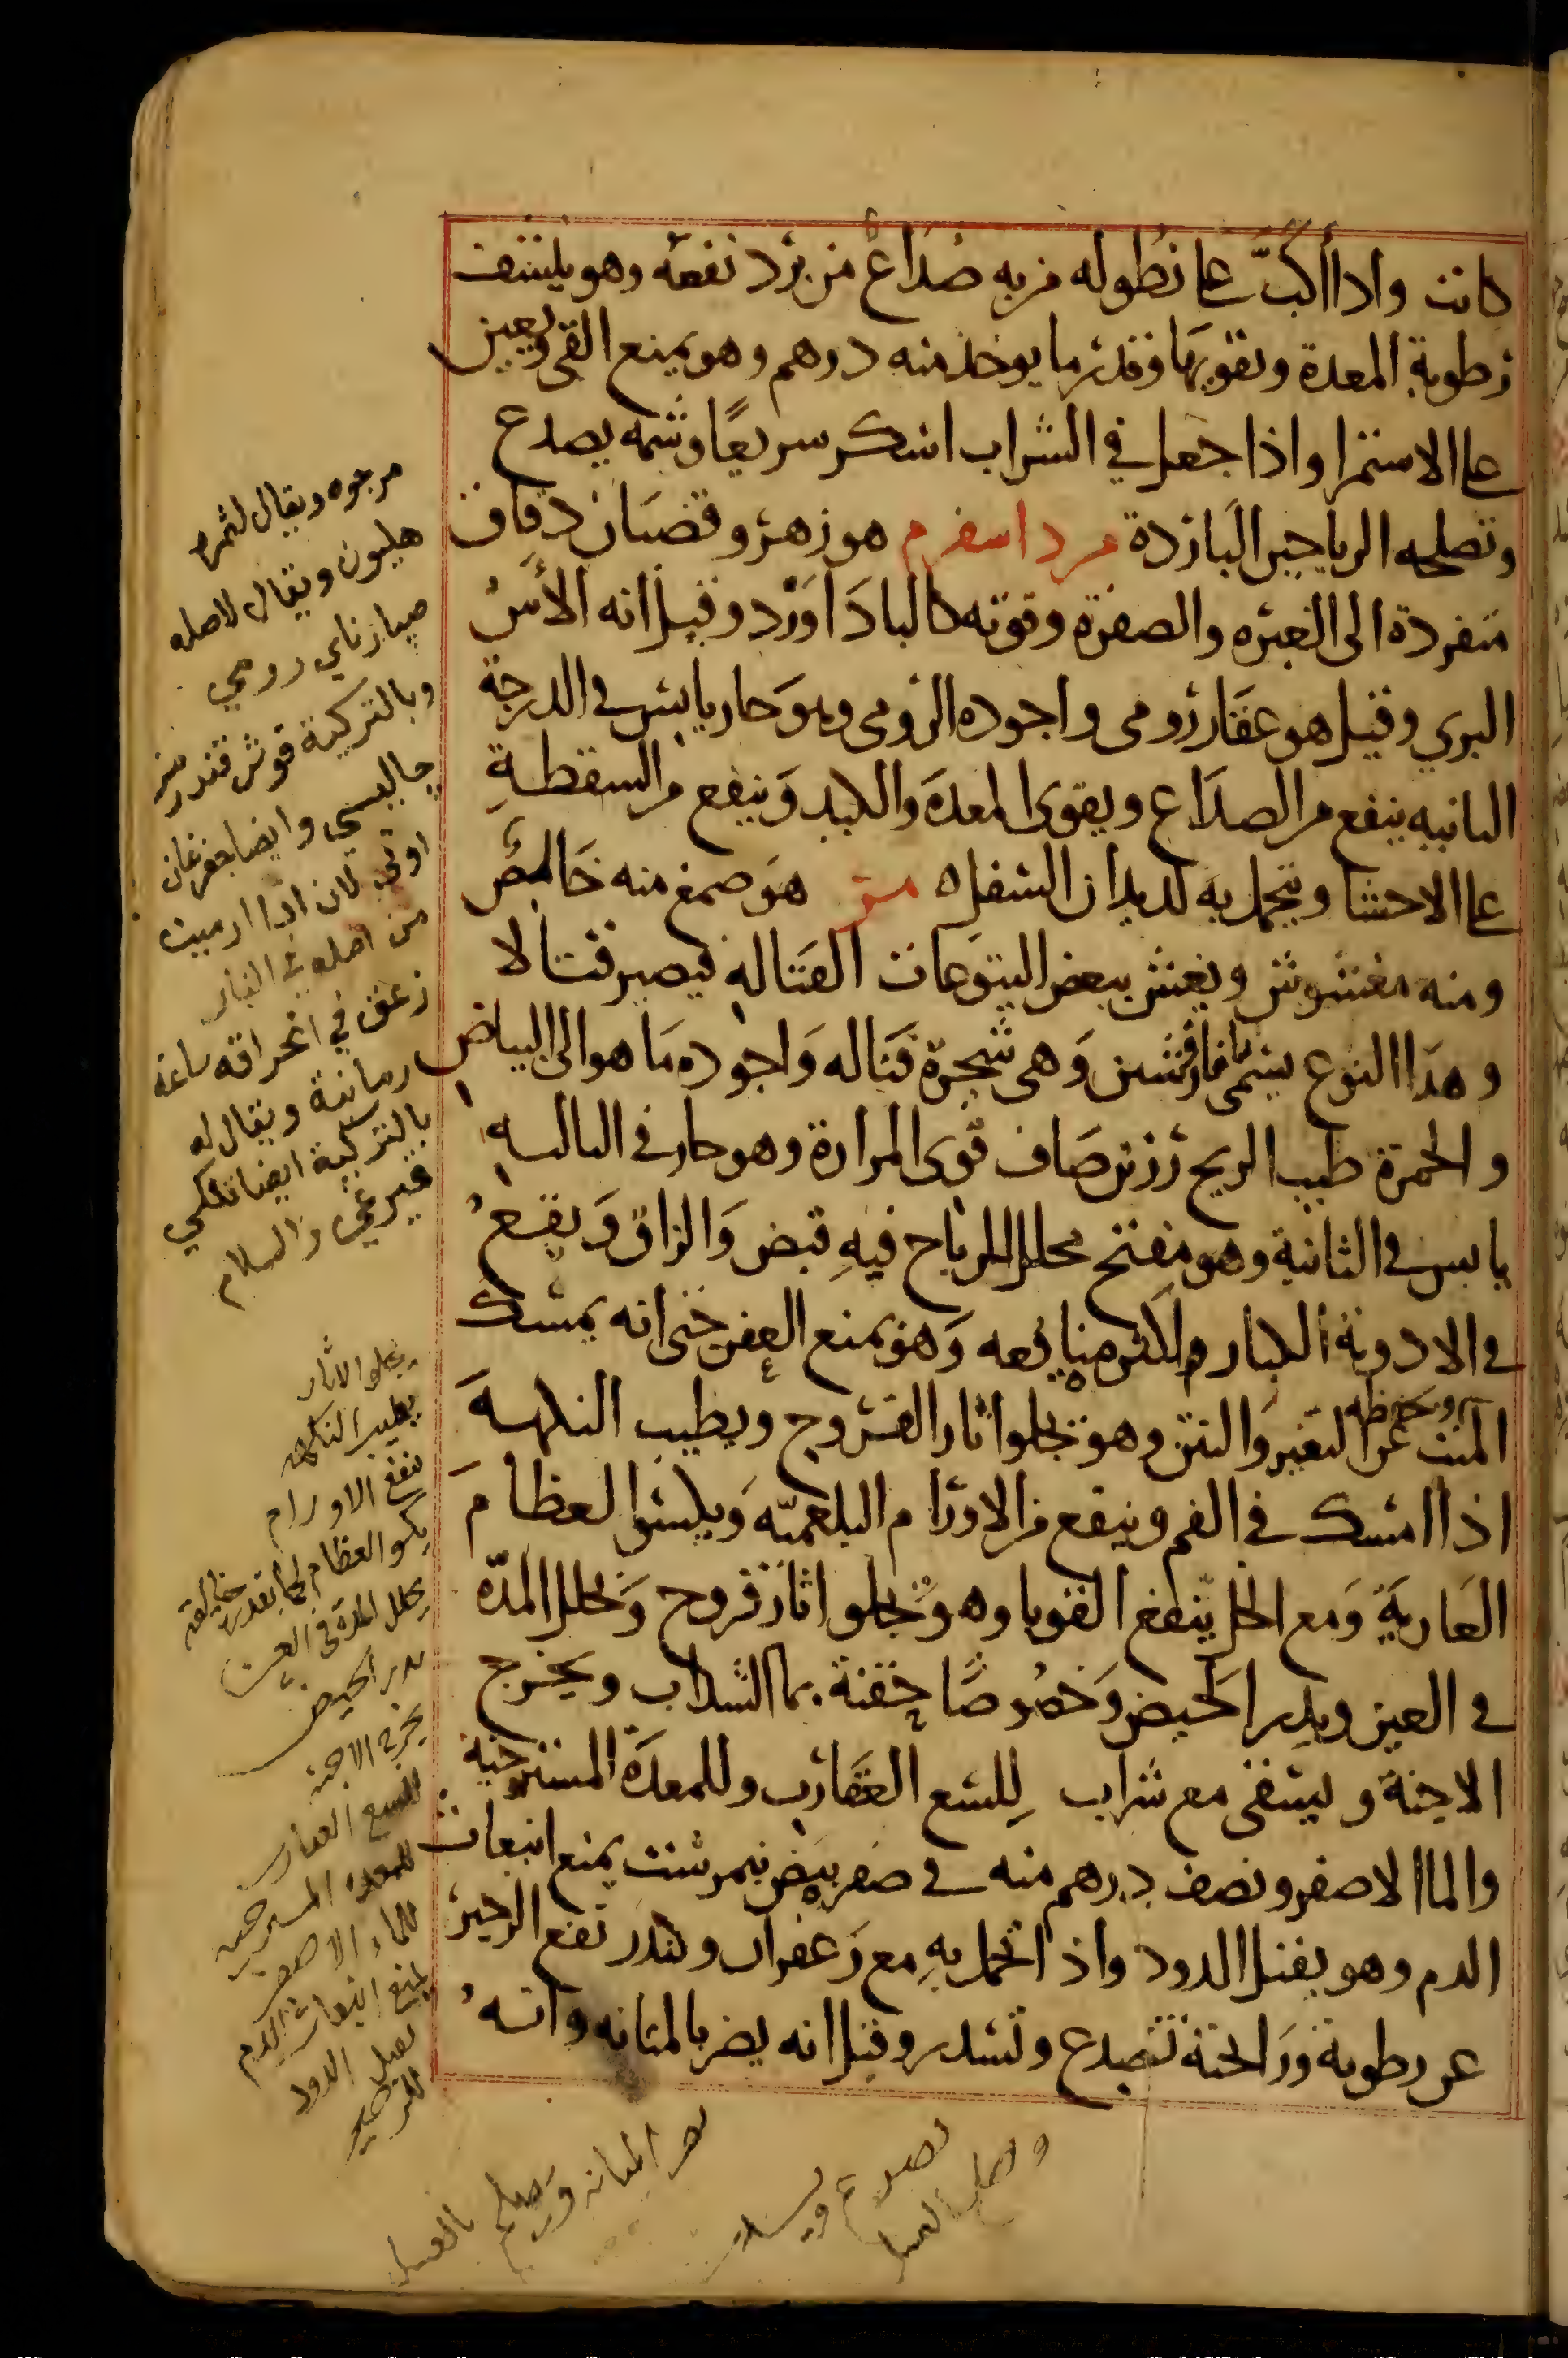 كانت واذا أكبّ على نطوله من به صداع من برد نفعه وهو ينشف
رطوبة المعدة ويقويها وقدر ما يوخذ منه درهم وهو يمنع القي ويعين
على الاستمرا واذا جعل في الشراب اسكر سريعًا وشمه يصدع
وتصلحه الرياحين الباردة مرداسفرم هو زهر وقضبان دقاق
متفردة الى الغبره والصفرة وقوته كالباداورد وقيل انه الأس
البري وقيل هو عقار رومى واجوده الرومى وهو حار يابس فى الدرجة
الثانيه ينفع من الصداع ويقوى المعدة والكبد وينفع من السقطة
على الاحشا ويتحمل به لديدان السفل ه مر هو صمغ منه خالص
ومنه مغشوش ويغش ببعض اليتوعات القتاله فيصير قتالا
وهذا النوع يسمى مافارقشين وهى شجرة قتاله واجوده ما هو الى البياض
والحمرة طيب الريح رزين صاف قوى المرارة وهو حار فى الثالثه
يابس فى الثانية وهو مفتح محلل للرياح فيه قبض والزاق ويقع
فى الادوية الكبار ولكثر منافعه وهو يمنع العفن حتى انه يمسك
الميت ويحفظه عن التغير والنتن وهو يجلوا اثار القروح ويطيب النكهة
اذا امسك فى الفم وينفع من الاورام البلغميّه ويكسوا العظام
العارية ومع الخل ينفع القوبا وهو يجلوا اثار قروح ويحلل المدّه
فى العين ويدر الحيض وخصوصًا حقنة بما السداب ويخرج
الاجنة ويسقى مع شراب للسع العقارب وللمعدة المسترخية
والما الاصفر ونصف درهم منه فى صفر بيض نيمرشت يمنع انبعاث
الدم وهو يقتل الدود واذا تحمل به مع زعفران وكندر نفع الزحير
عن رطوبة ورائحته تصدع وتسدر وقيل انه يضر بالمثانه وانه
مرجوه ويقال لثمره
هليون ويقال لاصله
رومي
وبالتركية قوش
وايضا
من اصله في النار
في احراقه ساعة
رمانية ويقال له
بالتركية ايضا
والسلام
يجلو الاثار
يطيب النكهه
ينفع الاورام
يكسو العظام
يحلل المدة فى العين
يدر الحيض
يخرج الاجنة
للسع العقارب
للمعدة المسترخيه
للماء الاصفر
يمنع انبعاث الدم
يقتل الدود
للزحير
يضر المثانه ويصلح بالعسل
يصدع ويسدر